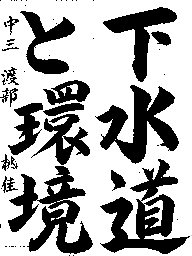 下水道
と環境
中三 渡部 桃佳